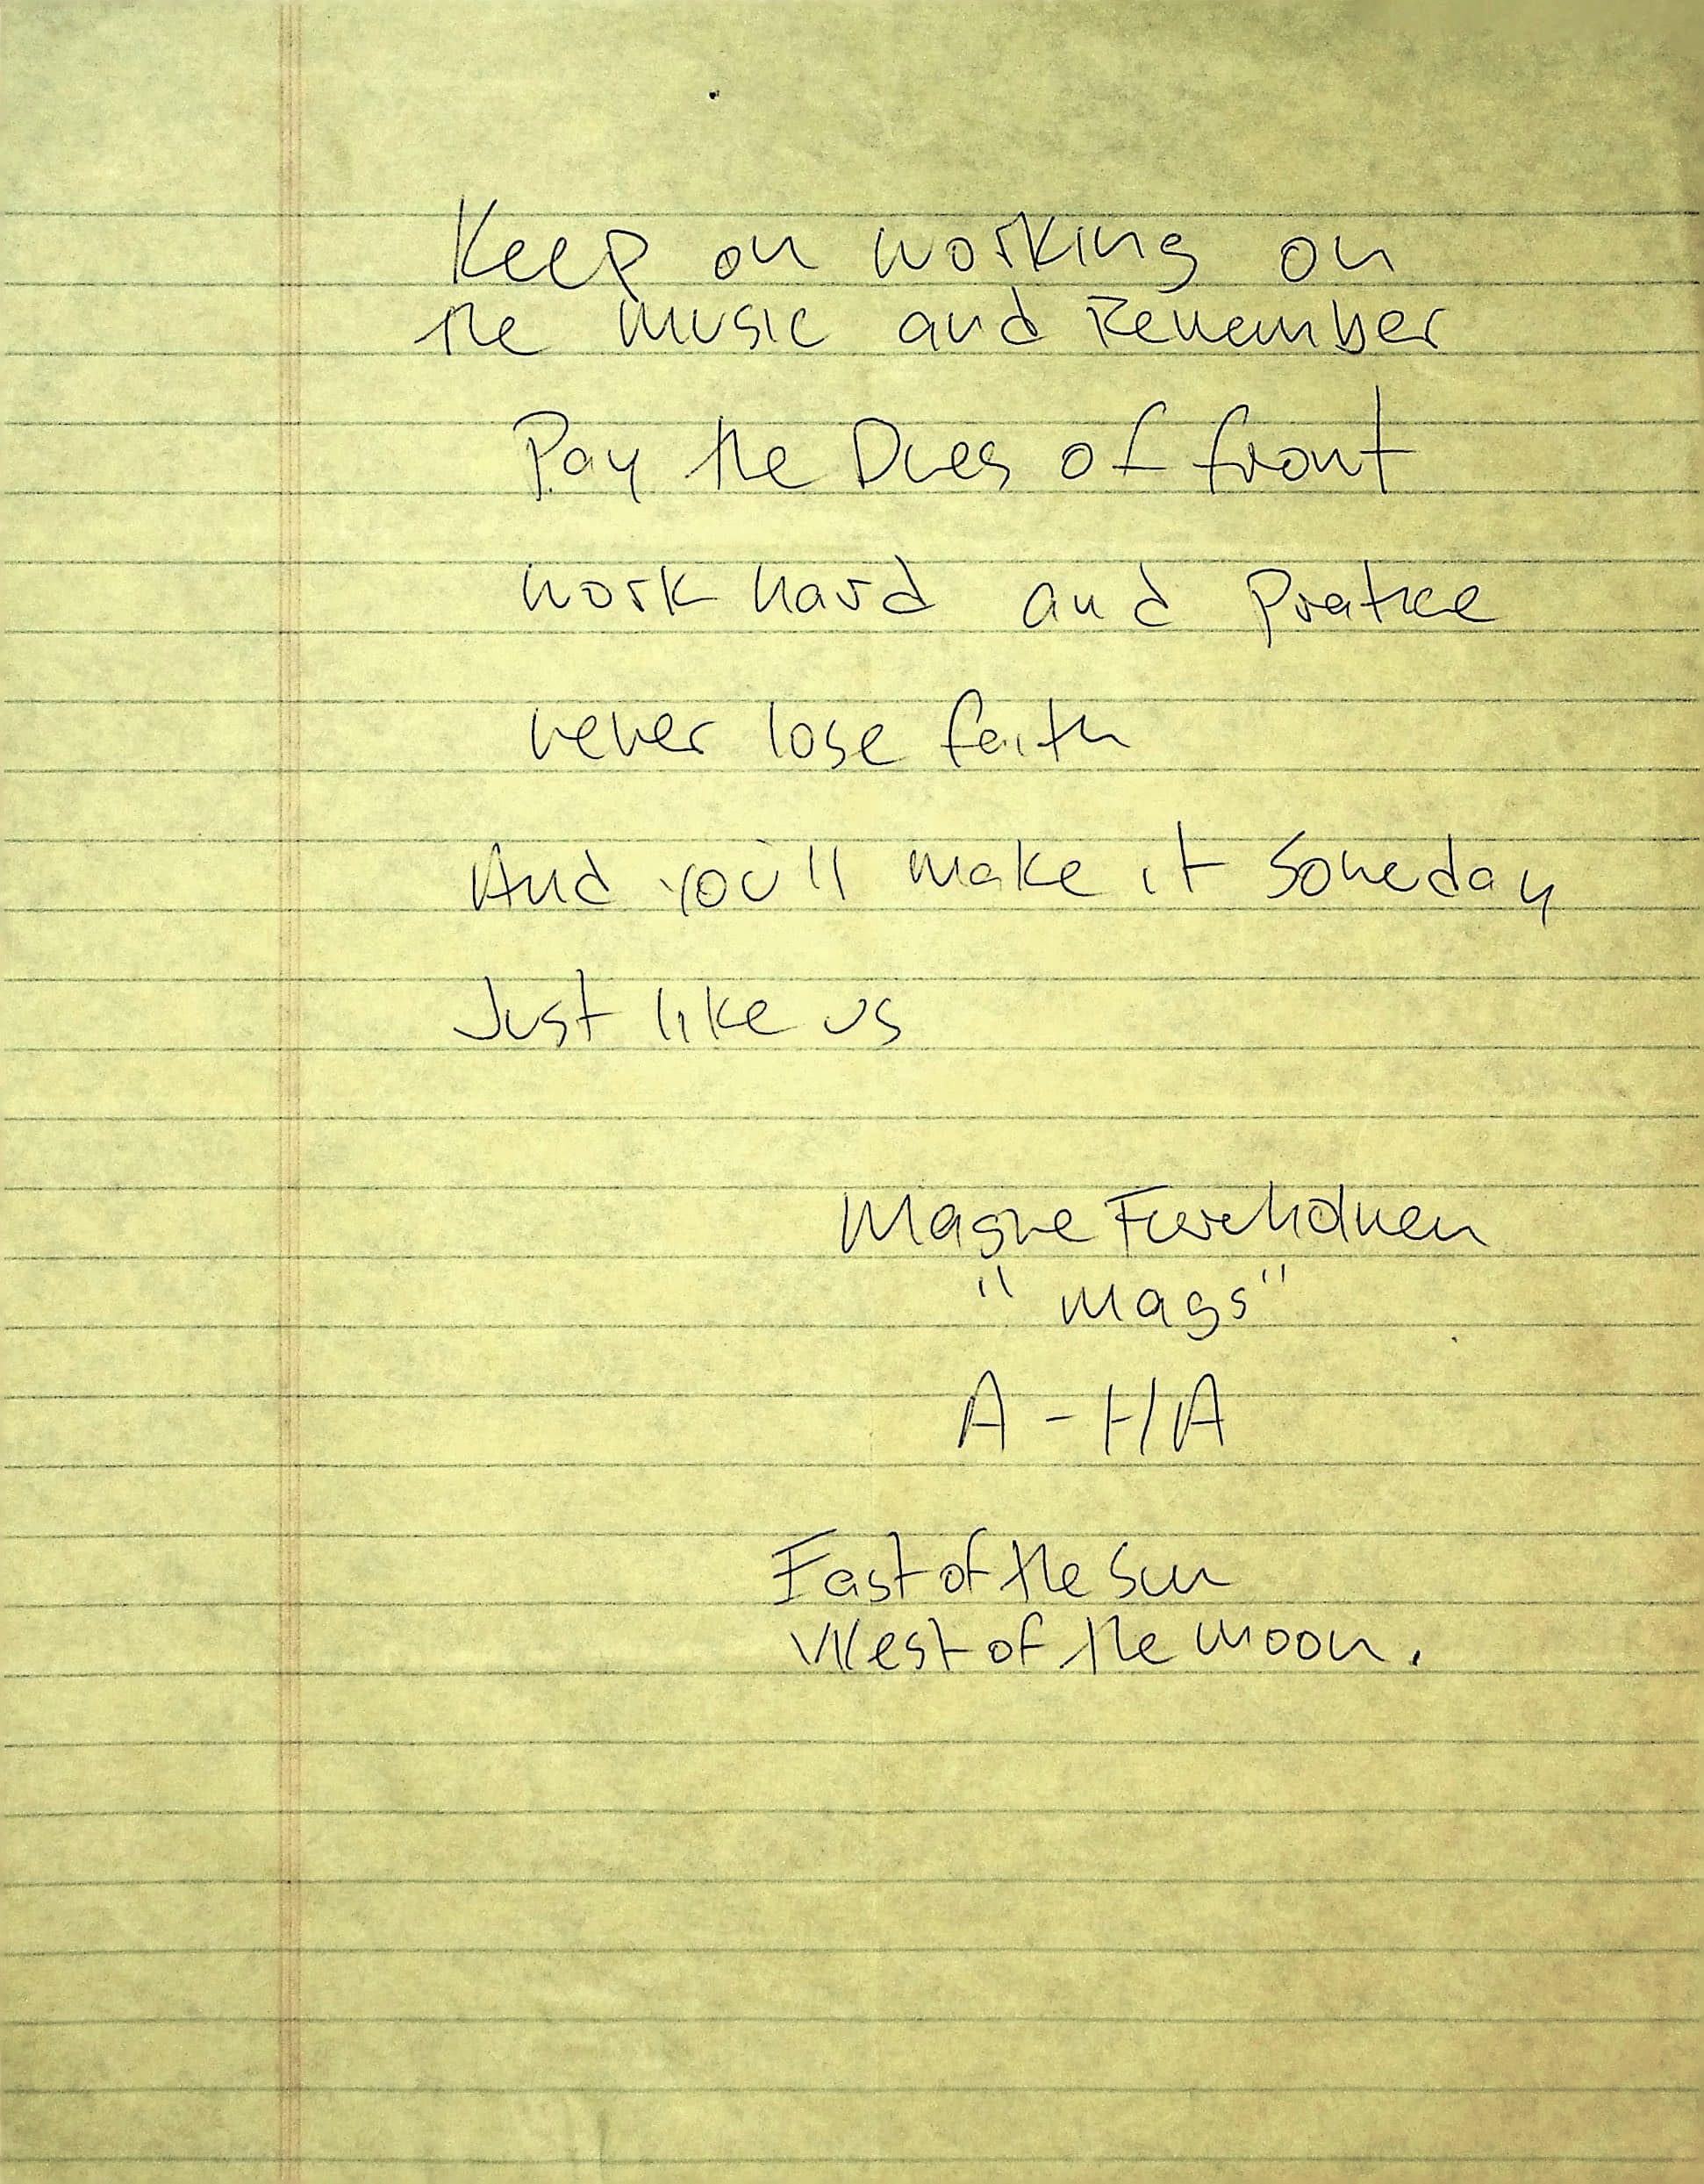 Keep on working on
the music and Remember
Pay the Dues of front
work hard and Pratice
never lose faith
And you'll make it Someday
Just like us
Magne Furuholmen
"Mags"
A-HA
East of the Sun
West of the moon.